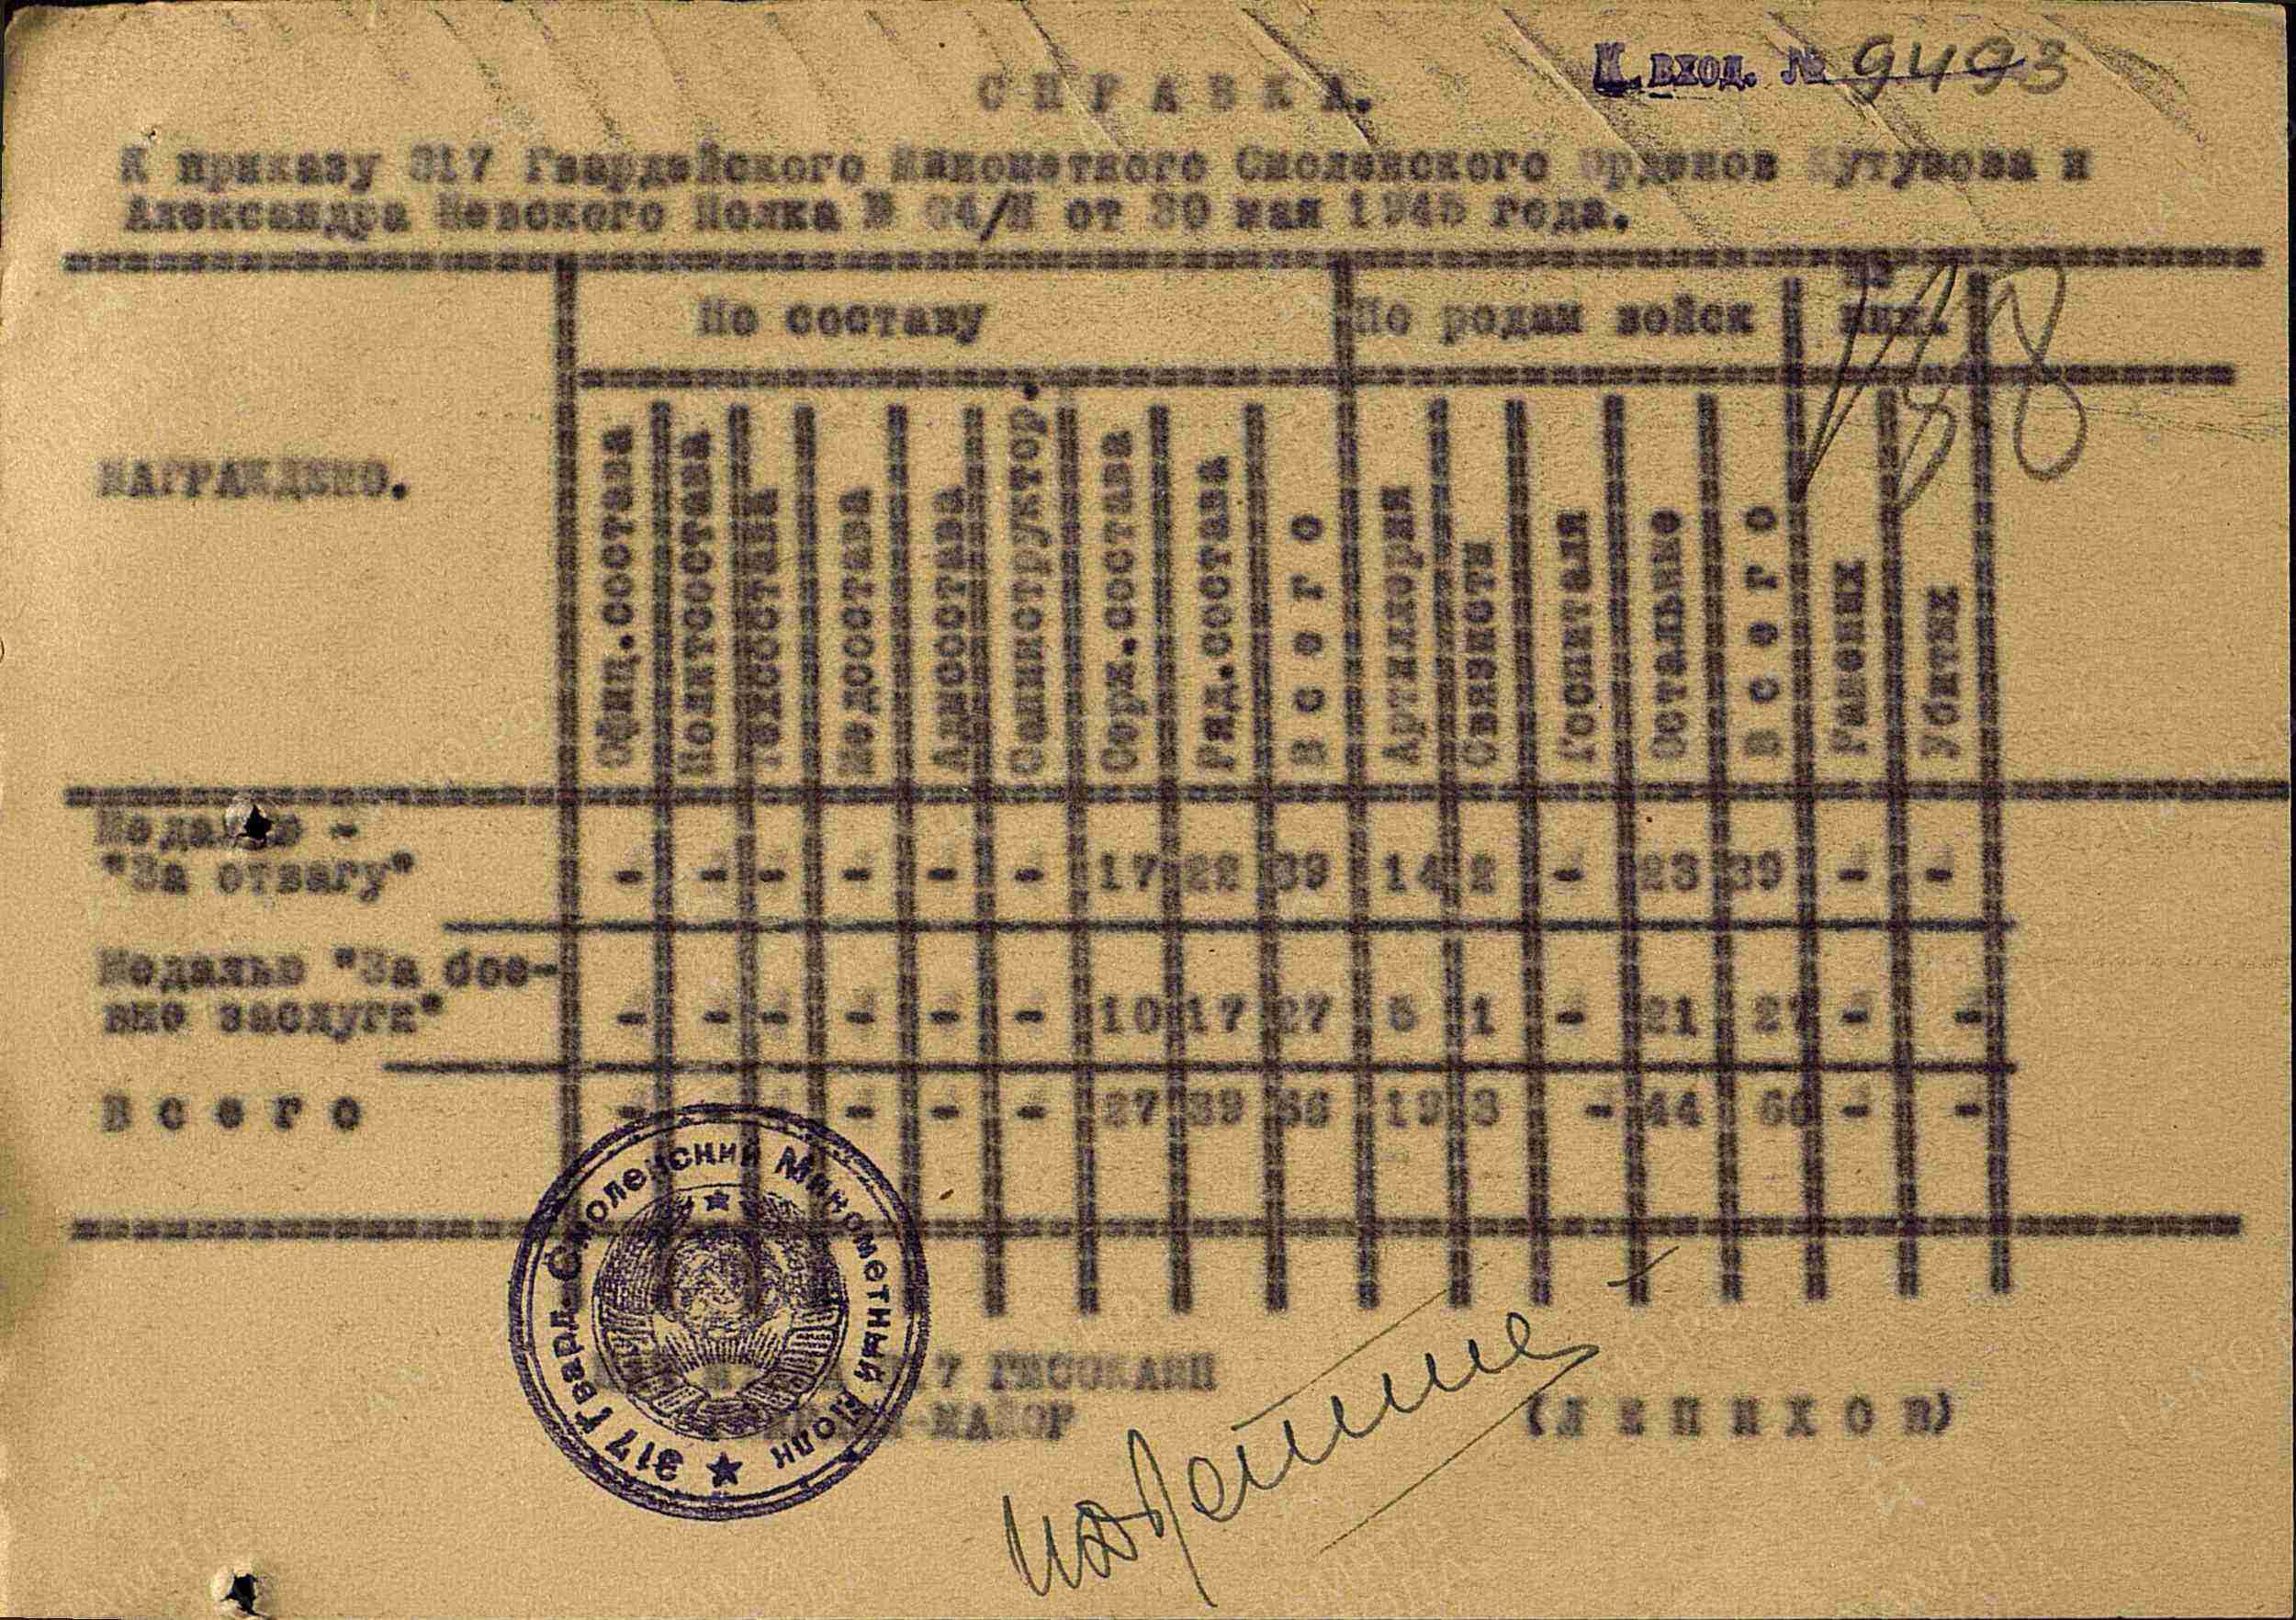 К. ВХОД. № 9493
СПРАВКА.
К приказу 317 Гвардейского Минометного Смоленского Орденов Кутузова и
Александра Невского Полка № 04/Н от 30 мая 1945 года.
НАГРАЖДЕНО.
По составу
По родам войск
Из них.
Офиц.состава
Политсостава
Техсостава
Медсостава
Админсостава
Санинструктор.
Серж.состава
Ряд.состава
Всего
Артиллерия
Связисты
Госпиталя
Остальные
Всего
Раненых
Убитых
Медалью -
"За отвагу" - - - - - - 17 22 39 14 2 - 23 39 - -
Медалью "За бое-
вые заслуги" - - - - - - 10 17 27 5 1 - 21 27 - -
Всего - - - - - 27 39 66 19 3 - 44 66 - -
317 Гвард. Смоленский Минометный Полк
7 ГМСОКАНП
-МАЙОР
(ЛЕПИХОВ)